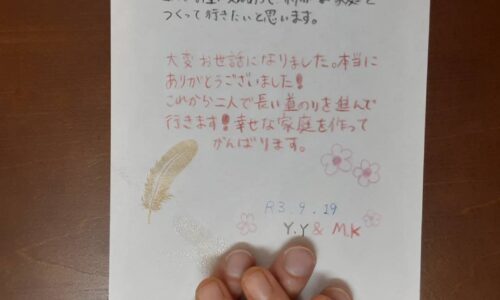 つくって行きたいと思います。
大変お世話になりました。本当に
ありがとうございました!
これから二人で長い道のりを進んで
行きます!幸せな家庭を作って
がんばります。
R3.9.19
Y.Y & M.K